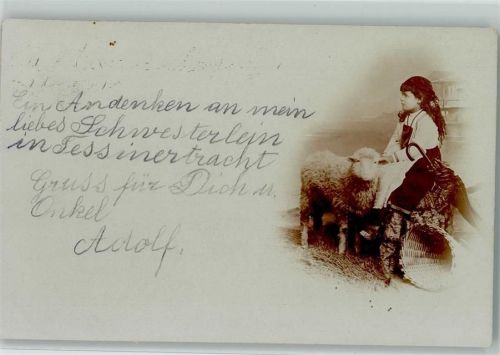 Ein Andenken an mein
liebes Schwesterlein
in Tessinertracht
Gruss für Dich u.
Onkel
Adolf.